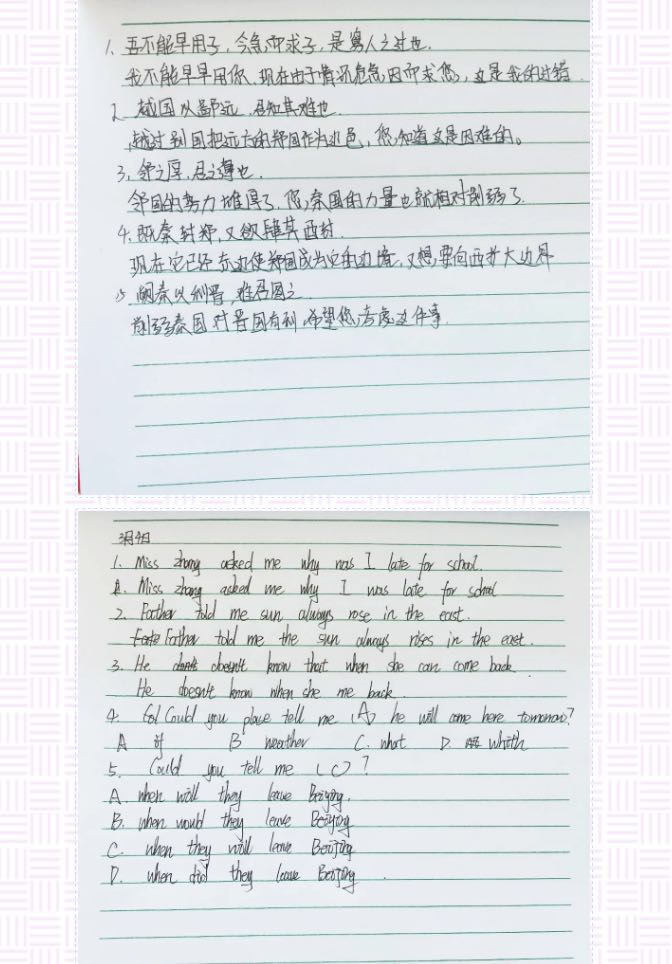 1. 吾不能早用子，今急而求子，是寡人之过也.
我不能早早用你，现在由于情况危急因而求您，这是我的过错
2. 越国以鄙远，君知其难也.
越过别国把远方的郑国作为边邑，您知道这是困难的。
3. 邻之厚，君之薄也.
邻国的势力雄厚了，您秦国的力量也就相对削弱了.
4. 既东封郑，又欲肆其西封.
现在它已经东边使郑国成为它的边境，又想要向西扩大边界
5 阙秦以利晋，唯君图之.
削弱秦国对晋国有利，希望您考虑这件事.
3月4日
1. Miss zhang asked me why was I late for school.
1. Miss zhang asked me why I was late for school
2. Father told me sun always rose in the east.
Father told me the sun always rises in the east.
3. He doesn't know that when she can come back.
He doesn't know when she me back.
4. Could you place tell me (A) he will come here tomorrow?
A if B weather C. what D. whith
5. Could you tell me (C)?
A. when will they leave Beijing.
B. when would they leave Beijing
C. when they will leave Beijing
D. when did they leave Beijing.